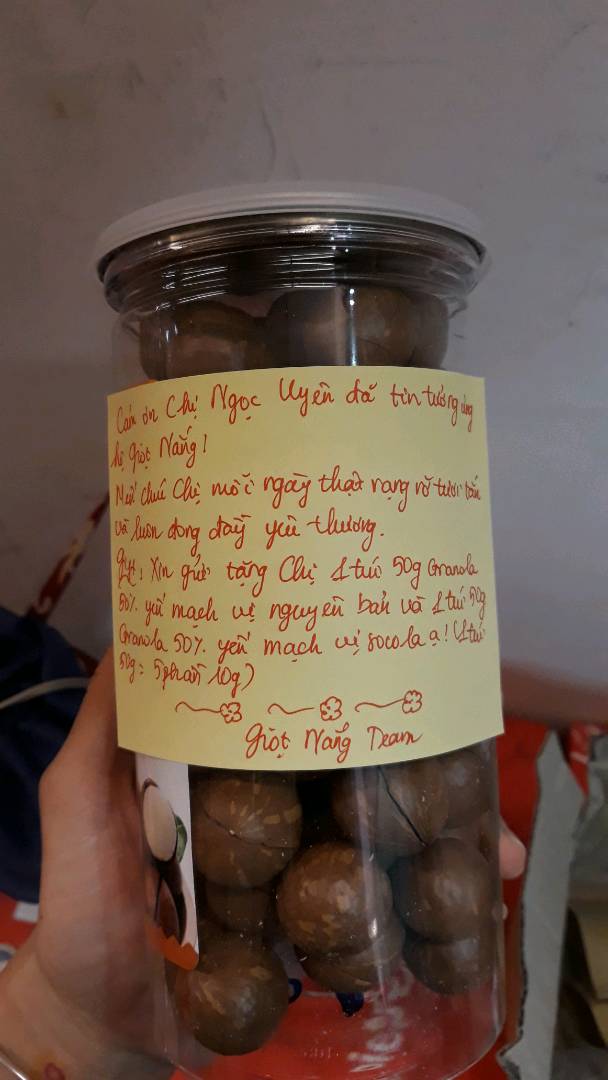 Cảm ơn Chị Ngọc Uyên đã tin tưởng ủng
hộ Giọt Nắng!
Mến chúc Chị mỗi ngày thật rạng rỡ tươi tắn
và luôn đong đầy yêu thương.
Gift! Xin gửi tặng Chị 1 túi 50g Granola
50% yến mạch vị nguyên bản và 1 túi 50g
Granola 50% yến mạch vị socola ạ! (1 túi
50g = 5 phần 10g)
Giọt Nắng Team